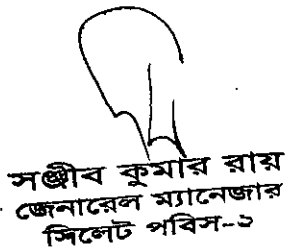 সঞ্জীব কুমার রায়
জেনারেল ম্যানেজার
সিলেট পবিস-২